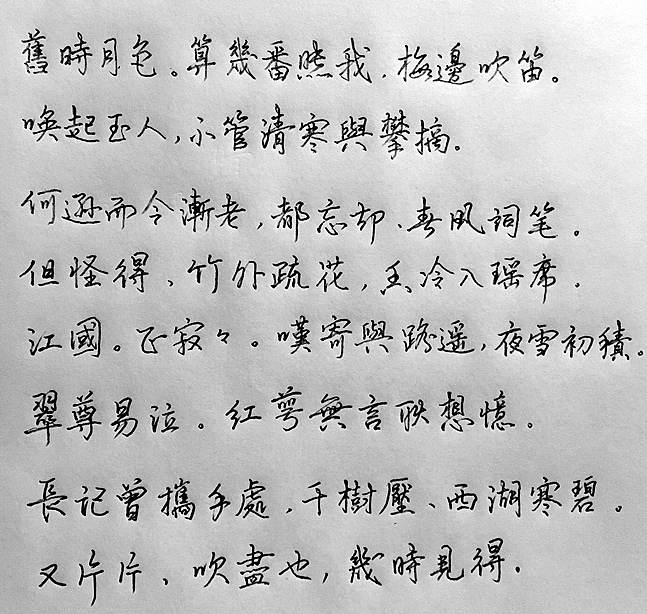 舊時月色。算幾番照我，梅邊吹笛。
喚起玉人，不管清寒與攀摘。
何遜而今漸老，都忘却、春風詞笔。
但怪得、竹外疏花，香冷入瑶席。
江國。正寂々。嘆寄與路遥，夜雪初積。
翠尊易泣。红萼無言耿想憶。
長记曾攜手處，千樹壓、西湖寒碧。
又片片、吹盡也，幾時見得.